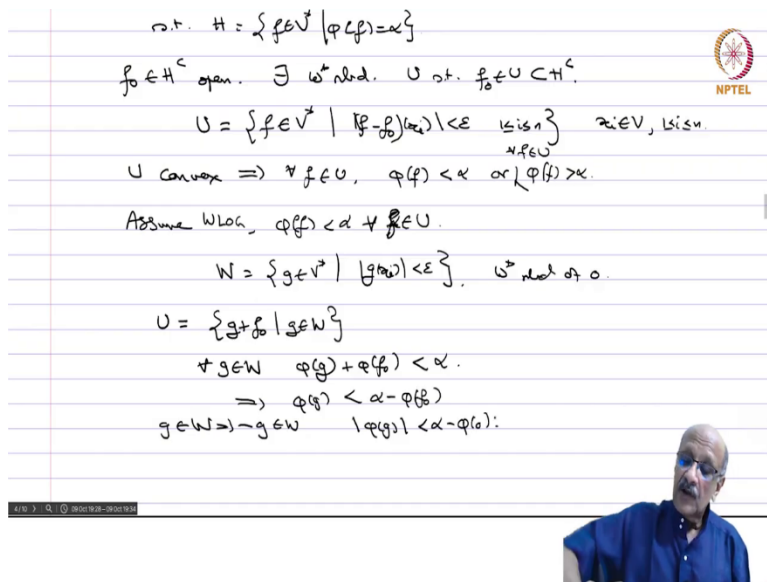 s.t. H = {f∈V* | φ(f)=α}
NPTEL
f₀ ∈ Hᶜ open. ∃ w* nbd. U s.t. f₀∈U⊂Hᶜ.
U = {f∈V* | |(f-f₀)(xᵢ)|<ε 1≤i≤n} xᵢ∈V, 1≤i≤n.
∀f∈U
U convex ⇒ ∀ f∈U, φ(f) < α or φ(f) >α.
Assume WLOG, φ(f) <α ∀ f∈U.
W = {g∈V* | |g(xᵢ)|<ε}, w* nbd of 0.
U = {g+f₀ | g∈W}
∀ g∈W φ(g) + φ(f₀) < α.
⇒ φ(g) < α-φ(f₀)
g∈W ⇒ -g∈W |φ(g)| <α-φ(f₀):
4/10 09 Oct 19:28 - 09 Oct 19:34